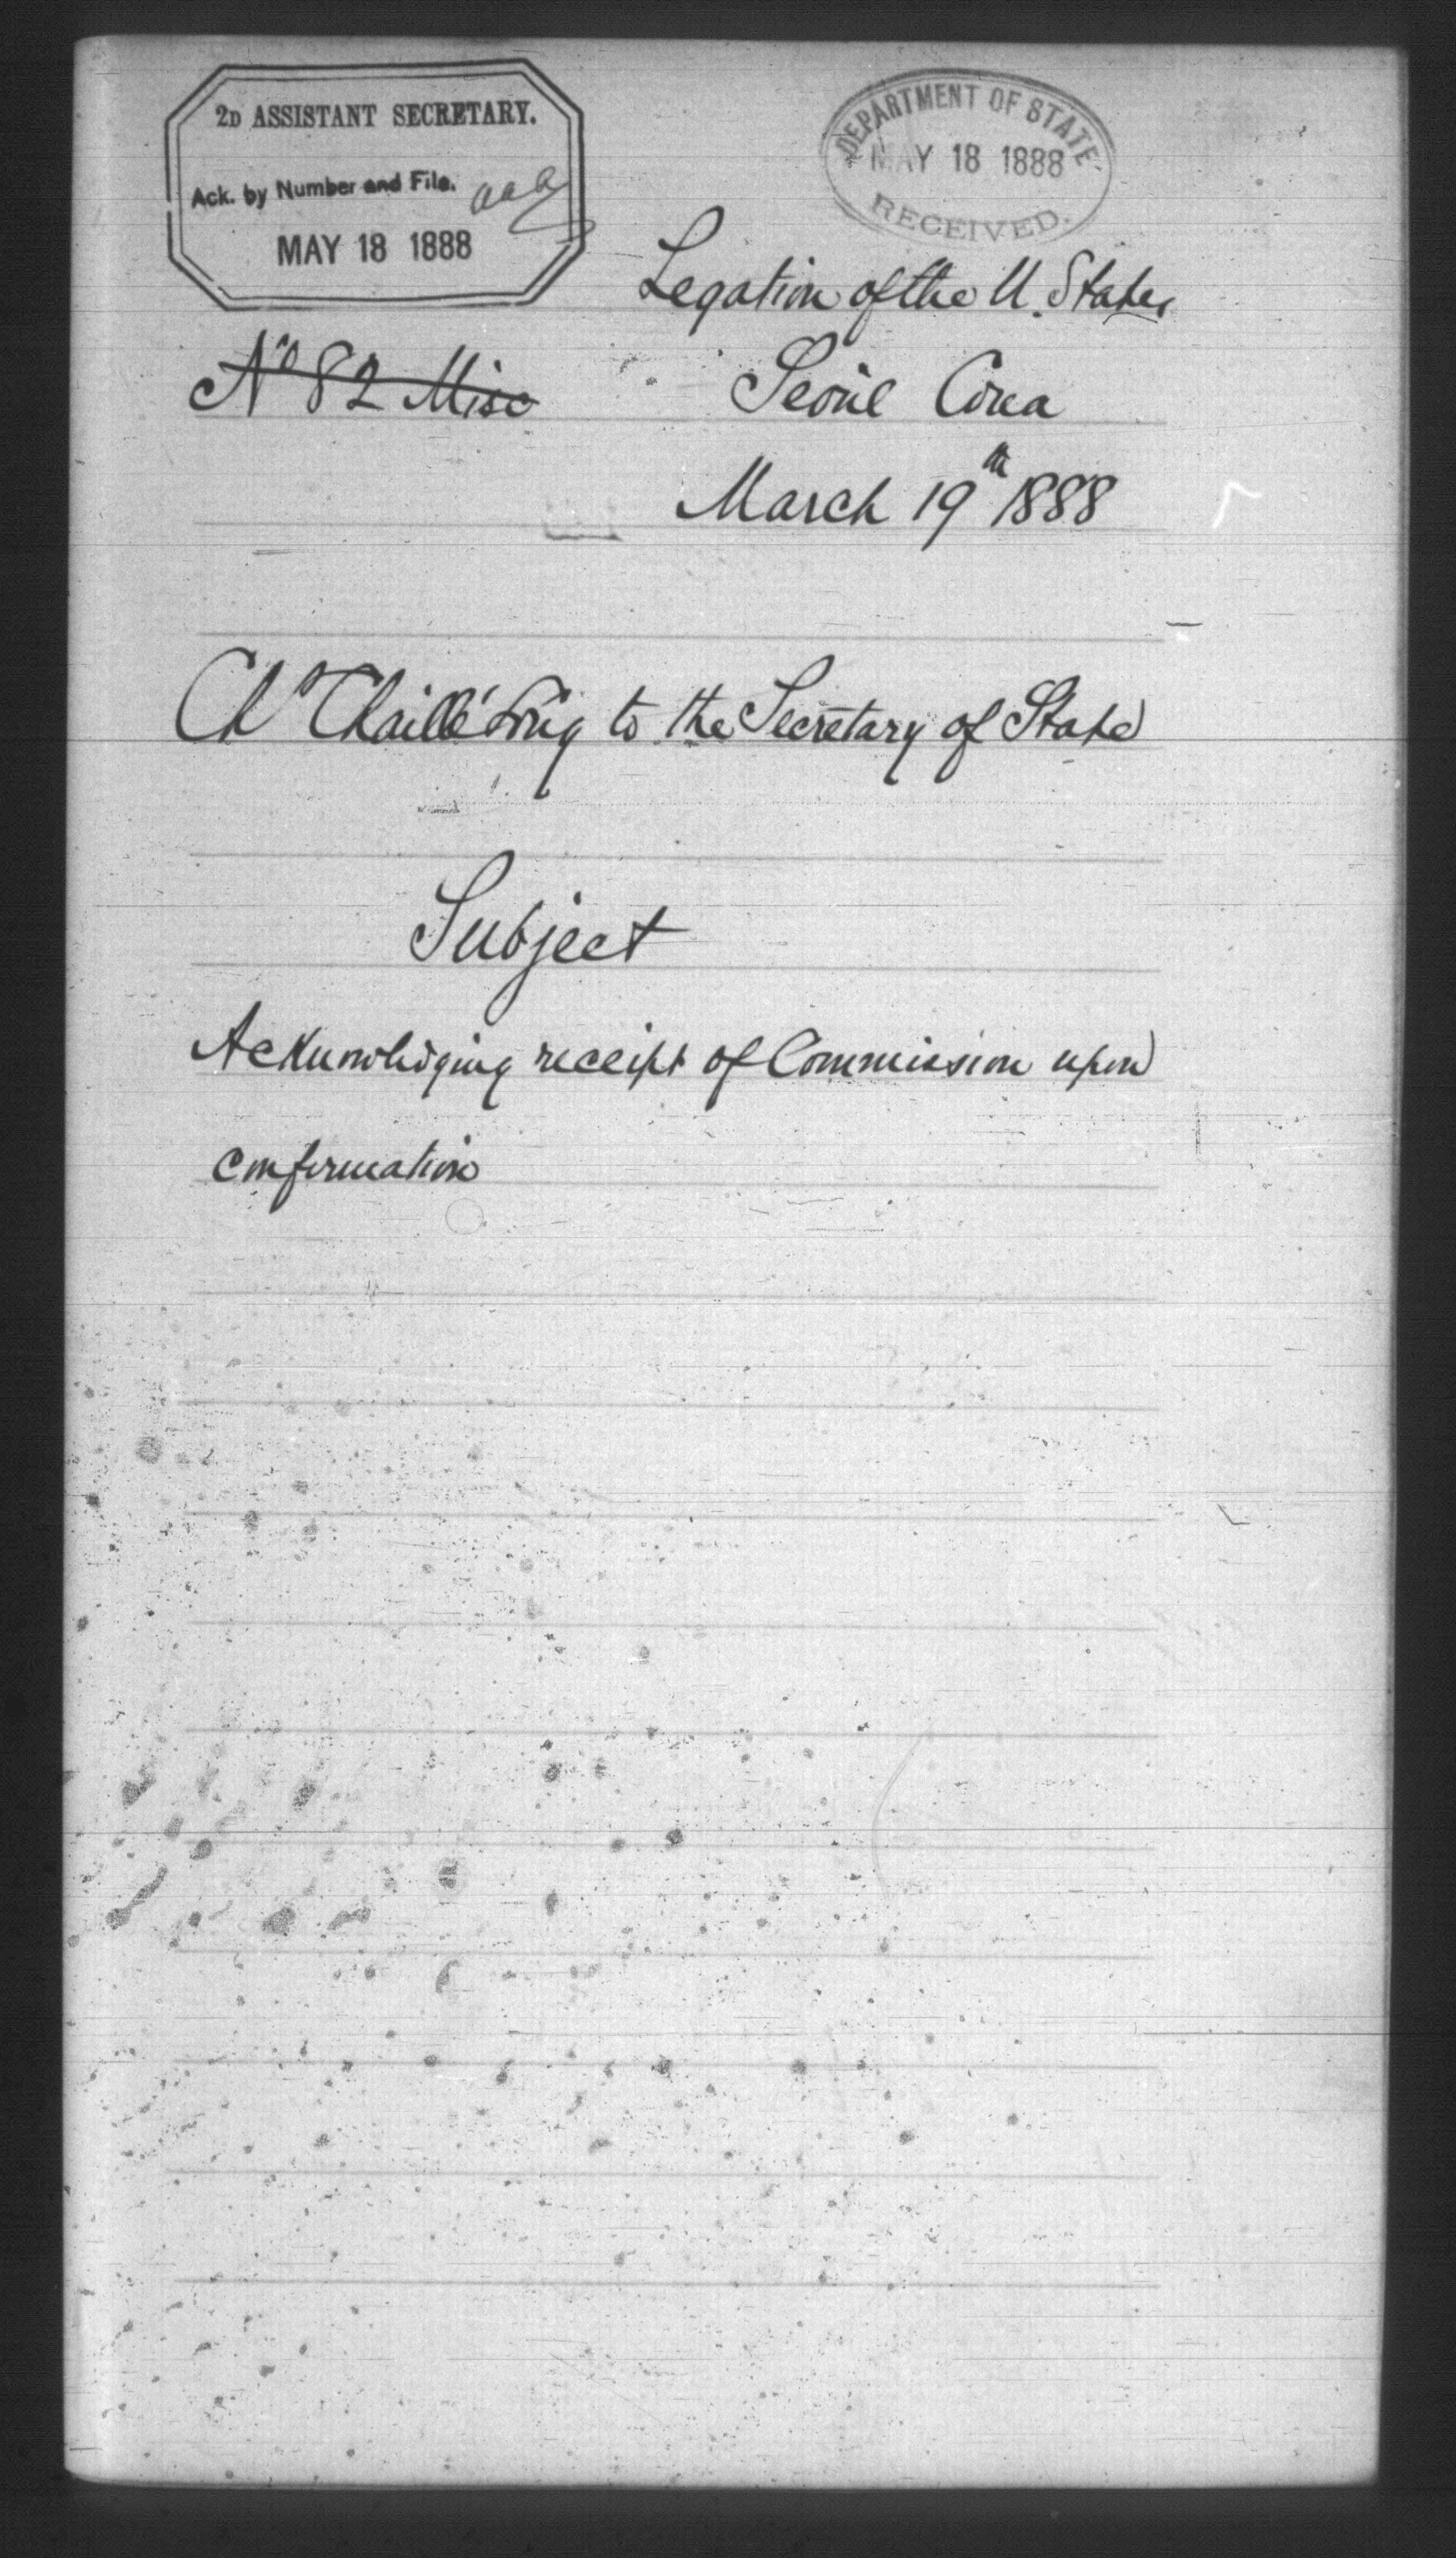 2D ASSISTANT SECRETARY.
Ack. by Number and File.
MAY 18 1888
DEPARTMENT OF STATE
MAY 18 1888
RECEIVED.
Legation of the U. States
No 82 Misc
Seoul Corea
March 19th 1888
Chs Chaillé Long to the Secretary of State
Subject
Acknowledging receipt of Commission upon
confirmation